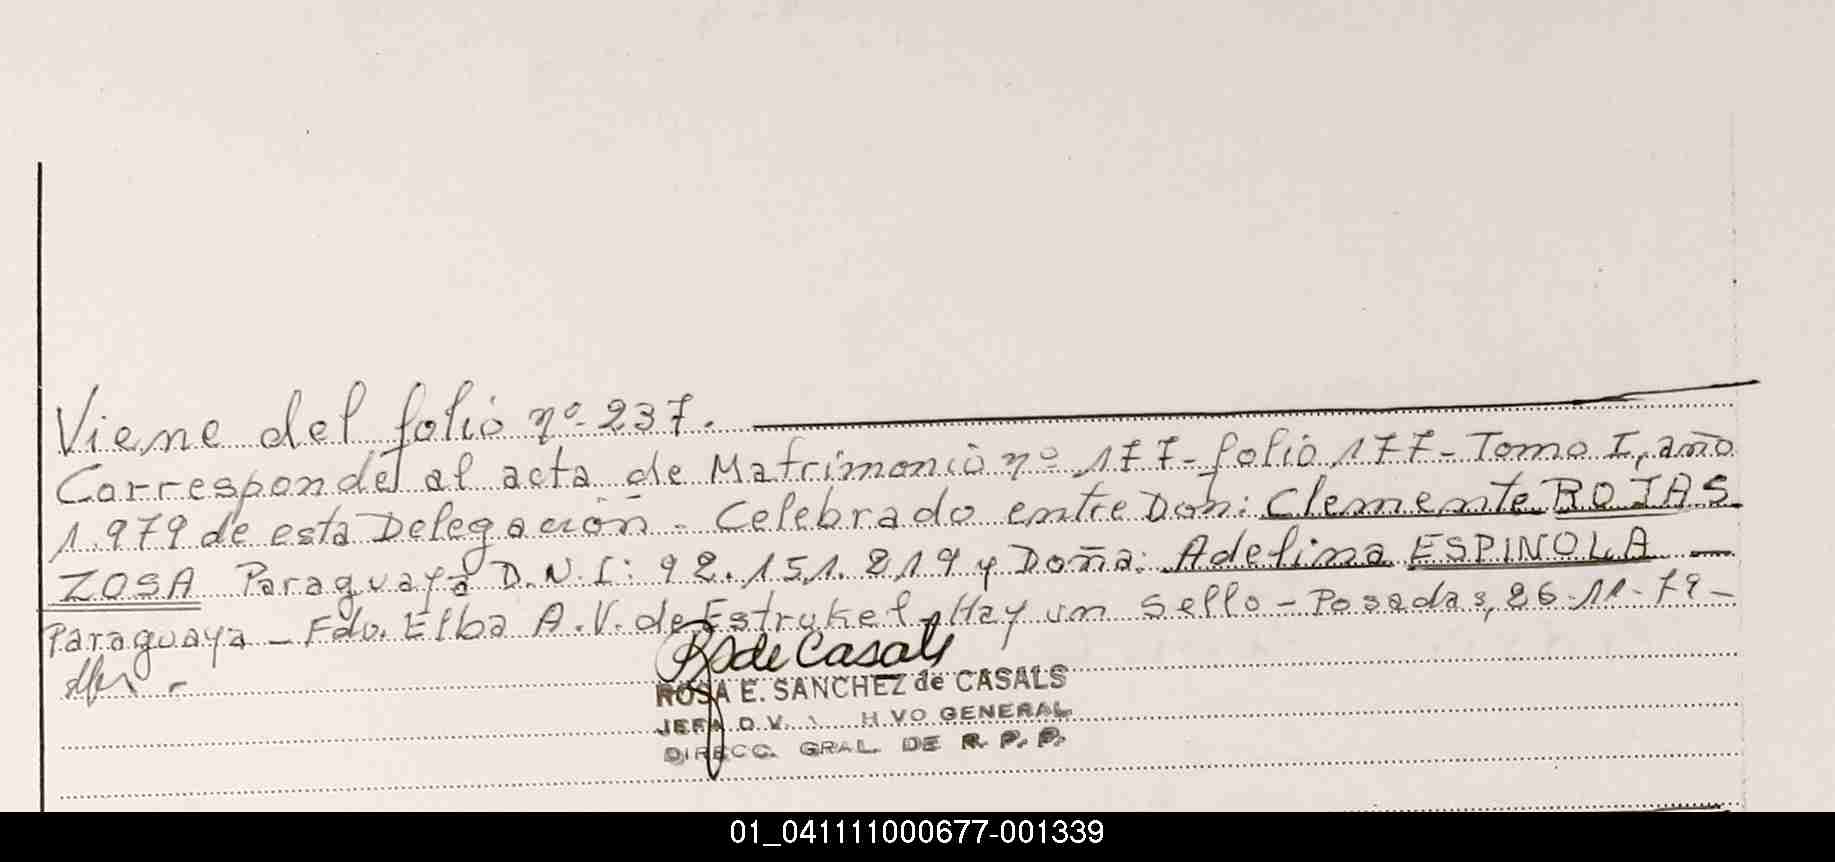 Viene del folio nº 237.
Corresponde al acta de Matrimonio nº 177 - folio 177 - Tomo I, año
1.979 de esta Delegación - Celebrado entre Don: Clemente ROJAS
ZOSA Paraguaya D.N.I: 92.151.219 y Doña: Adelina ESPINOLA —
Paraguaya - Fdo. Elba A.V. de Estrukel - Hay un Sello - Posadas, 26-11-79 -
RS de Casals
ROSA E. SANCHEZ de CASALS
JEFA DIV. H VO GENERAL
DIRECC. GRAL. DE R. P. P.
01_041111000677-001339